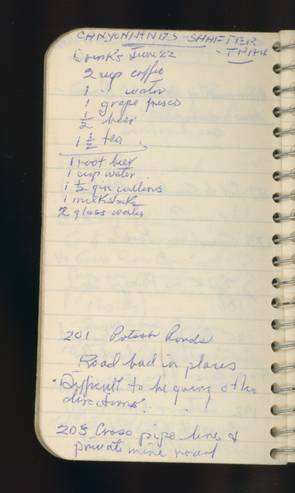 CANYONLANDS - SHAFTER
- TRAIL
Drinks June 22
2 cup coffee
1 " water
1 grape fresca
1/2 beer
1 1/2 tea
1 root beer
1 cup water
1 1/2 gin collins
1 milkshake
2 glass water
201 Potash Ponds
Road bad in places
Difficult to be going other
directions.
205 Cross pipe line &
private mine road